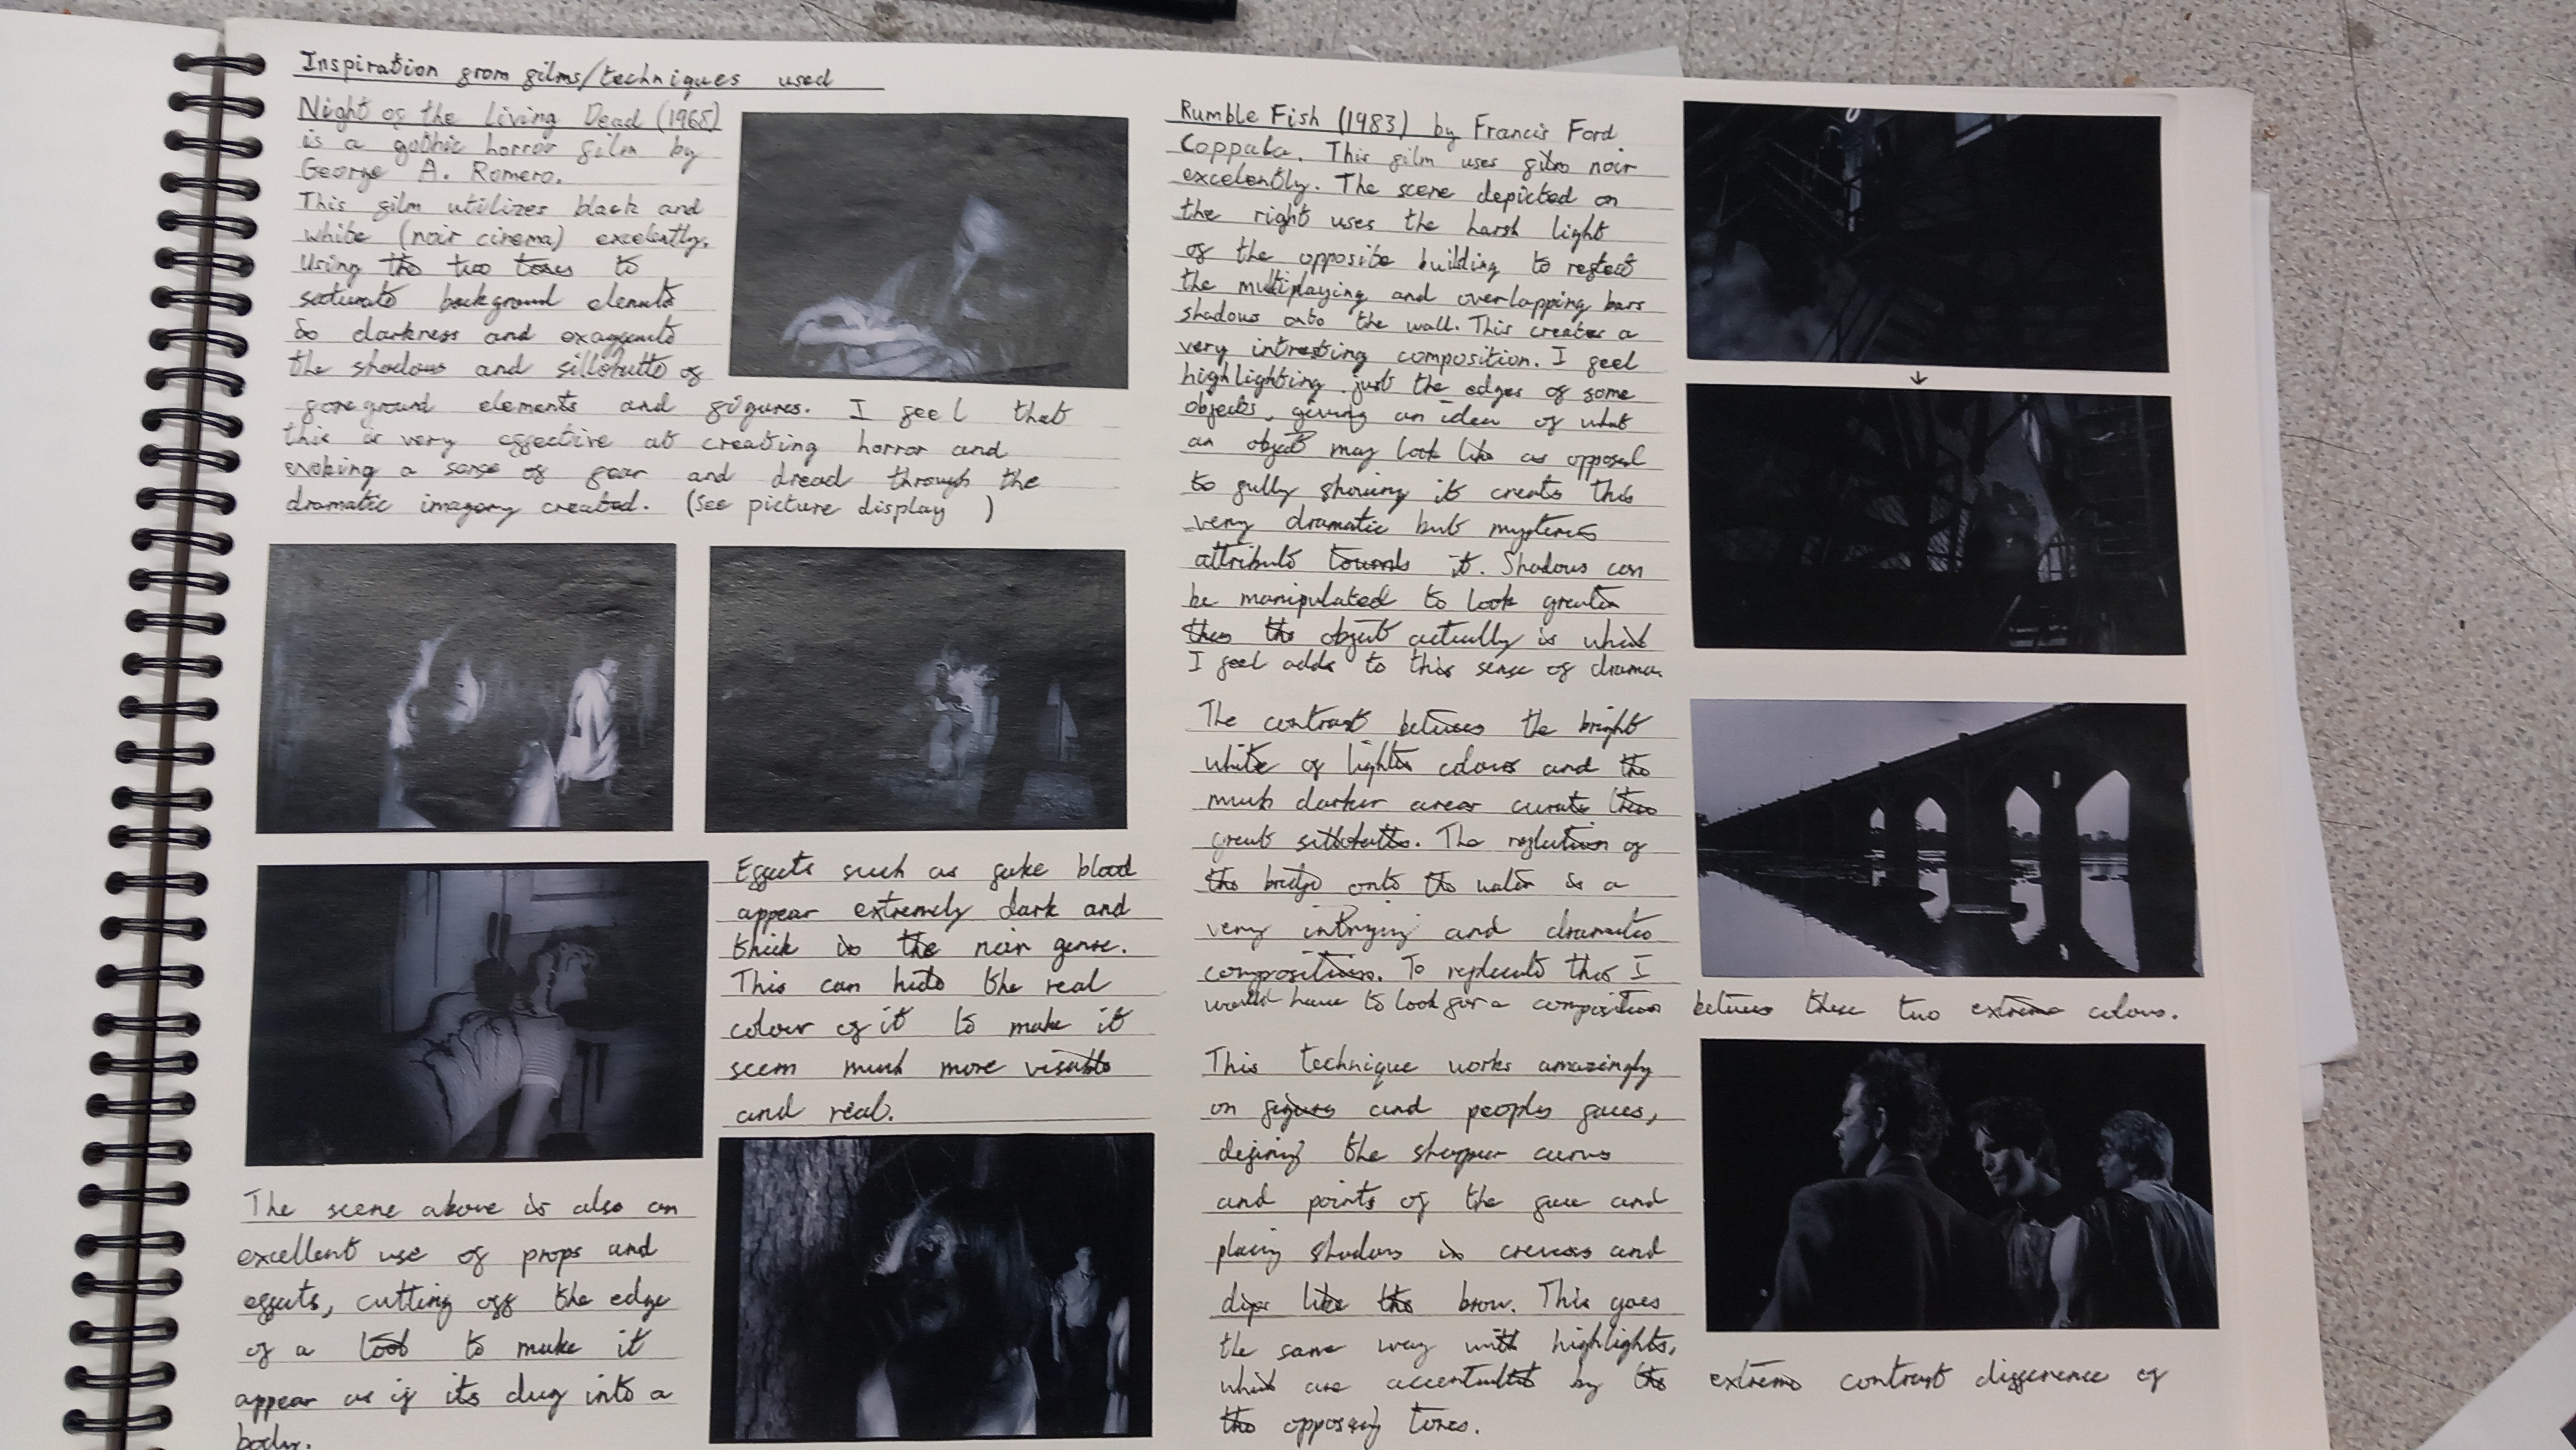 Inspiration from films/techniques used
Night of the living Dead (1968)
is a gothic horror film by
George A. Romero.
This film utilizes black and
white (noir cinema) excelently.
Using the two tones to
saturate background elements
so darkness and exagerate
the shadows and sillohutte of
foreground elements and figures. I feel that
this is very effective at creating horror and
evoking a sense of fear and dread through the
dramatic imagery created. (see picture display)
The scene above is also an
excellent use of props and
effects, cutting off the edge
of a tool to make it
appear as if its dug into a
body.
Effects such as fake blood
appear extremely dark and
thick in the noir genre.
This can hide the real
colour of it to make it
seem much more visible
and real.
Rumble Fish (1983) by Francis Ford
Coppula. This film uses film noir
excelently. The scene depicted on
the right uses the harsh light
of the opposite building to reflect
the multiplaying and overlapping bars
shadows onto the wall. This creates a
very intresting composition. I feel
highlighting just the edges of some
objects, giving an idea of what
an object may look like as opposed
to fully showing it creates this
very dramatic but mysterious
attribute towards it. Shadows can
be manipulated to look greater
then the object actually is which
I feel adds to this sense of drama
The contrast between the bright
white of lighter colours and the
much darker areas create these
great sillohuttes. The reflection of
the bridge onto the water is a
very intriging and dramatic
composition. To replicate this I
would have to look for a composition
between these two extreme colours.
This technique works amazingly
on figures and peoples faces,
defining the sharper curves
and points of the face and
placing shadows in creases and
dips like the brow. This goes
the same way with highlights,
which are accentuated by the
the opposing tones.
extreme contrast difference of